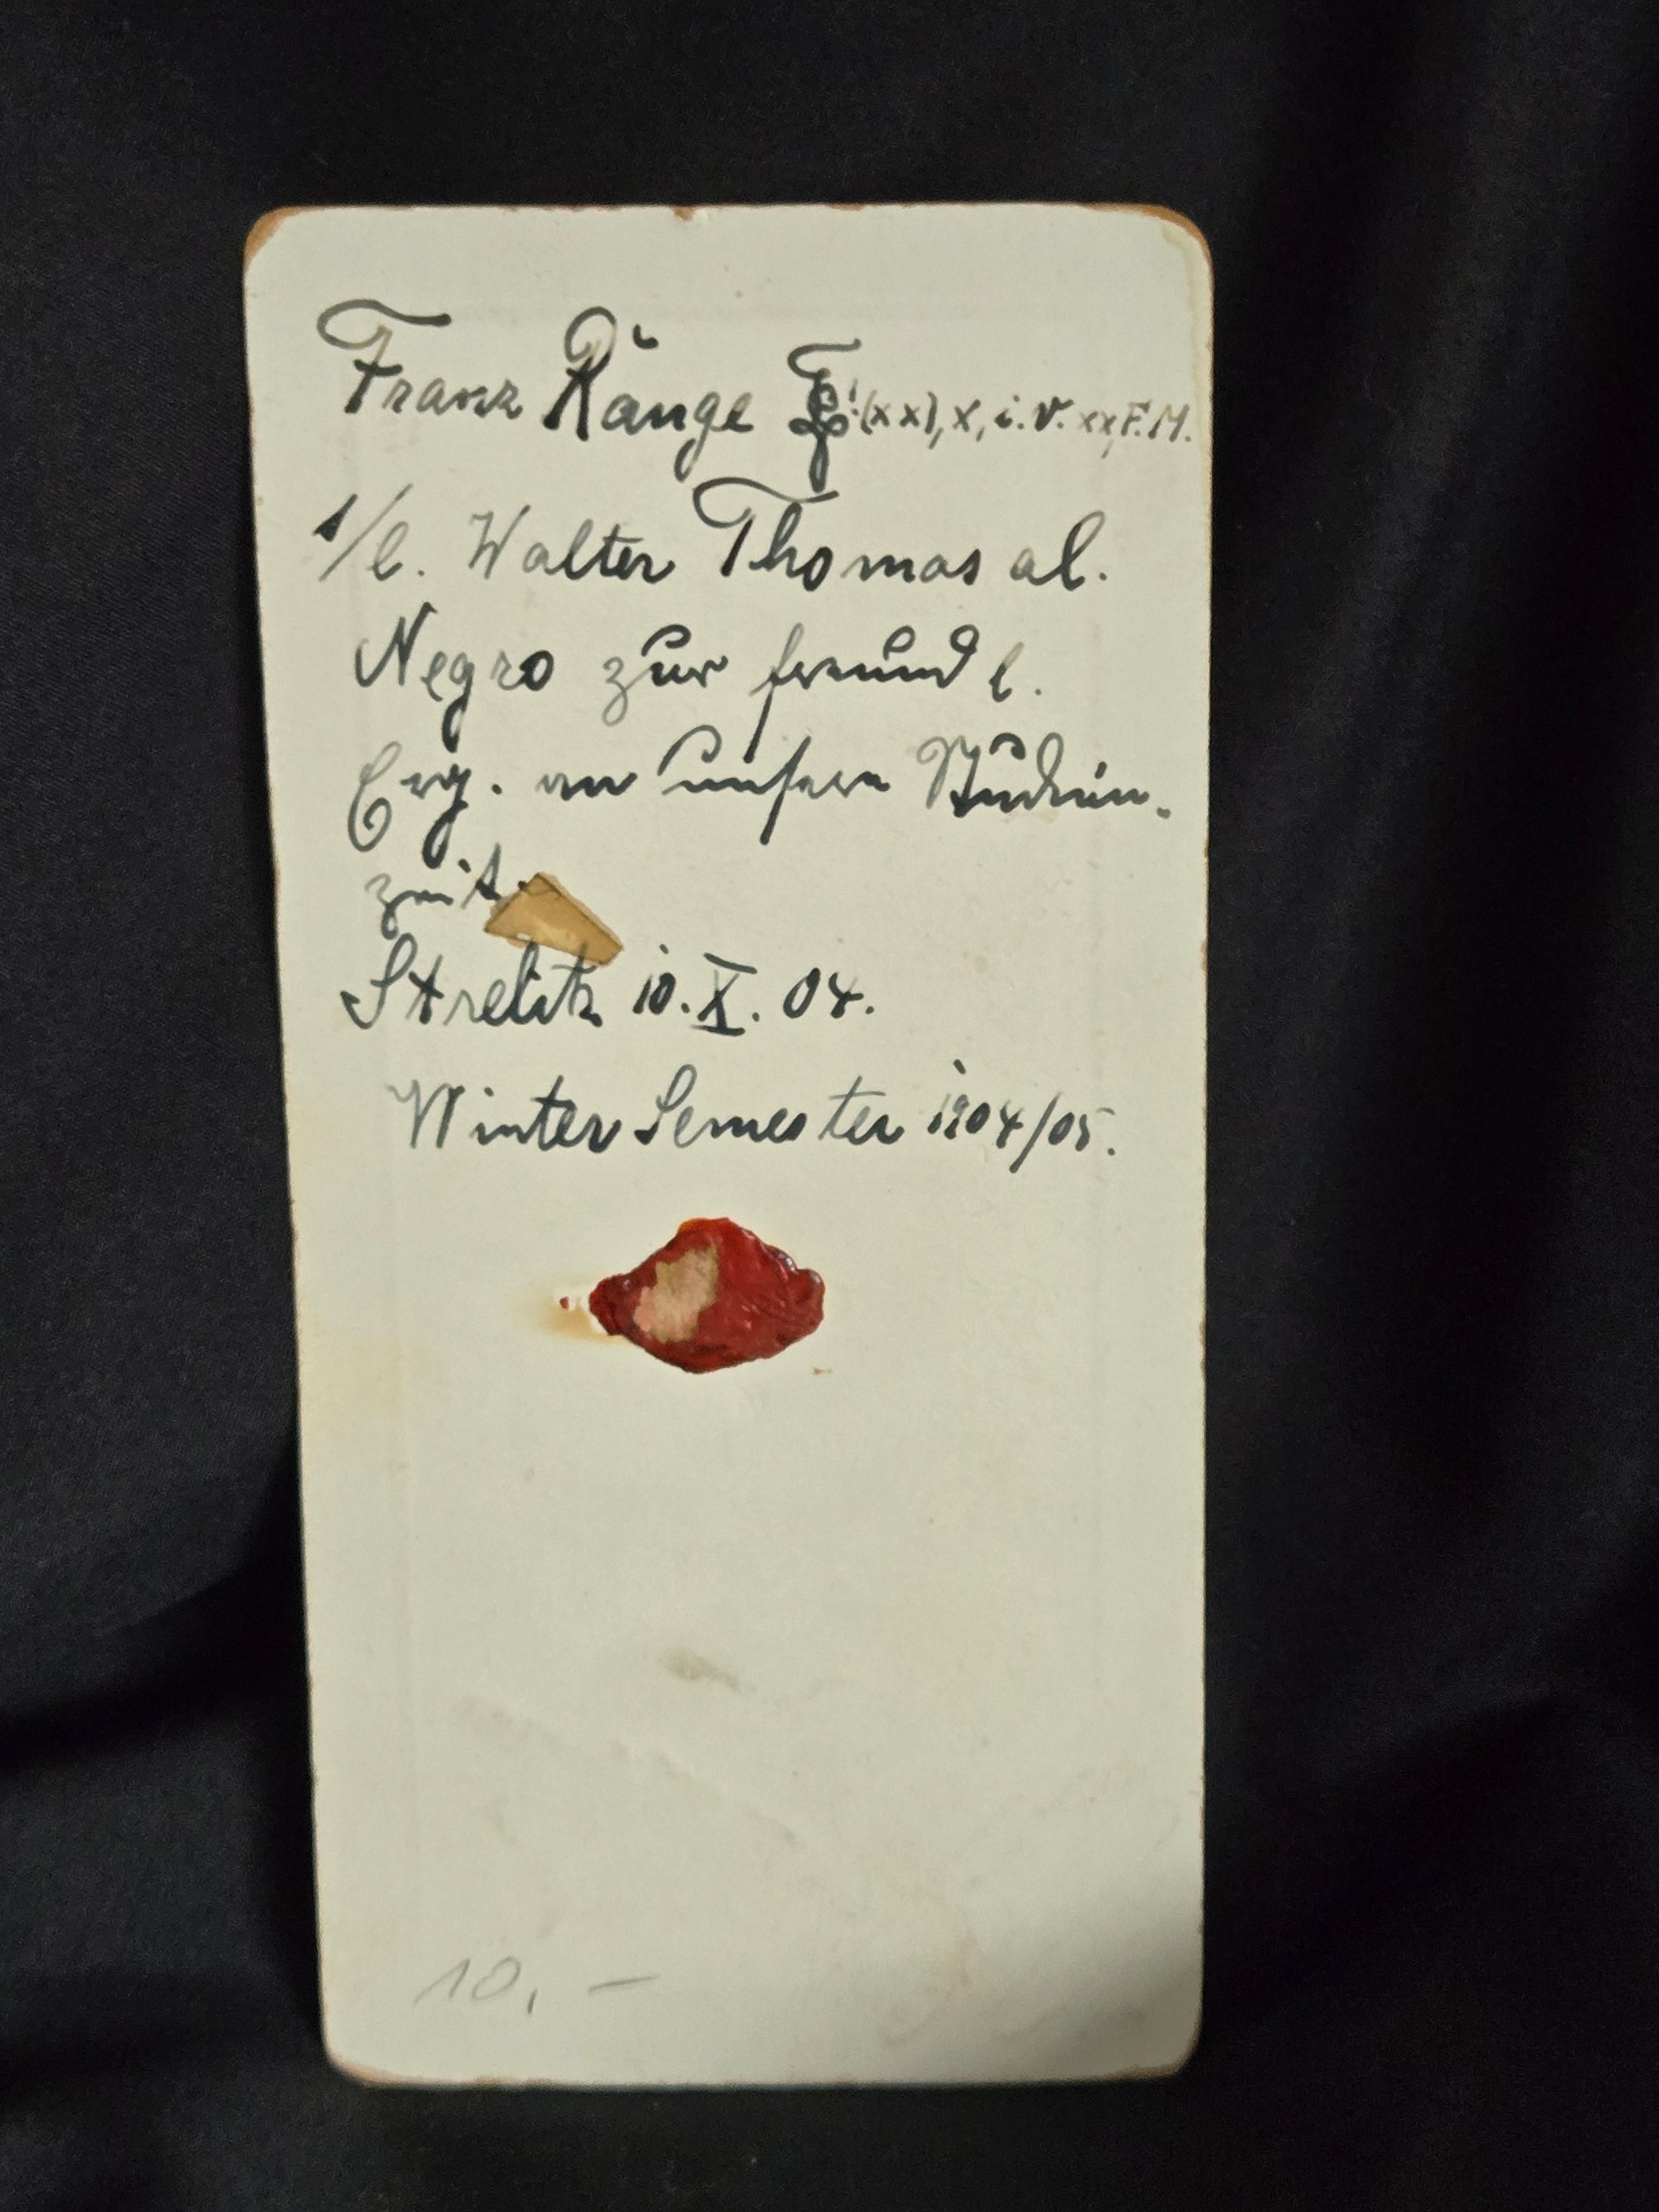 Franz Range (xx), x, i. v. xx, F. M.
s/l. Walter Thomas al.
Negro zur freundl.
Erg. an unsere Studien-
zeit.
Strelitz 10. X. 04.
Winter Semester 1904/05.
10, –